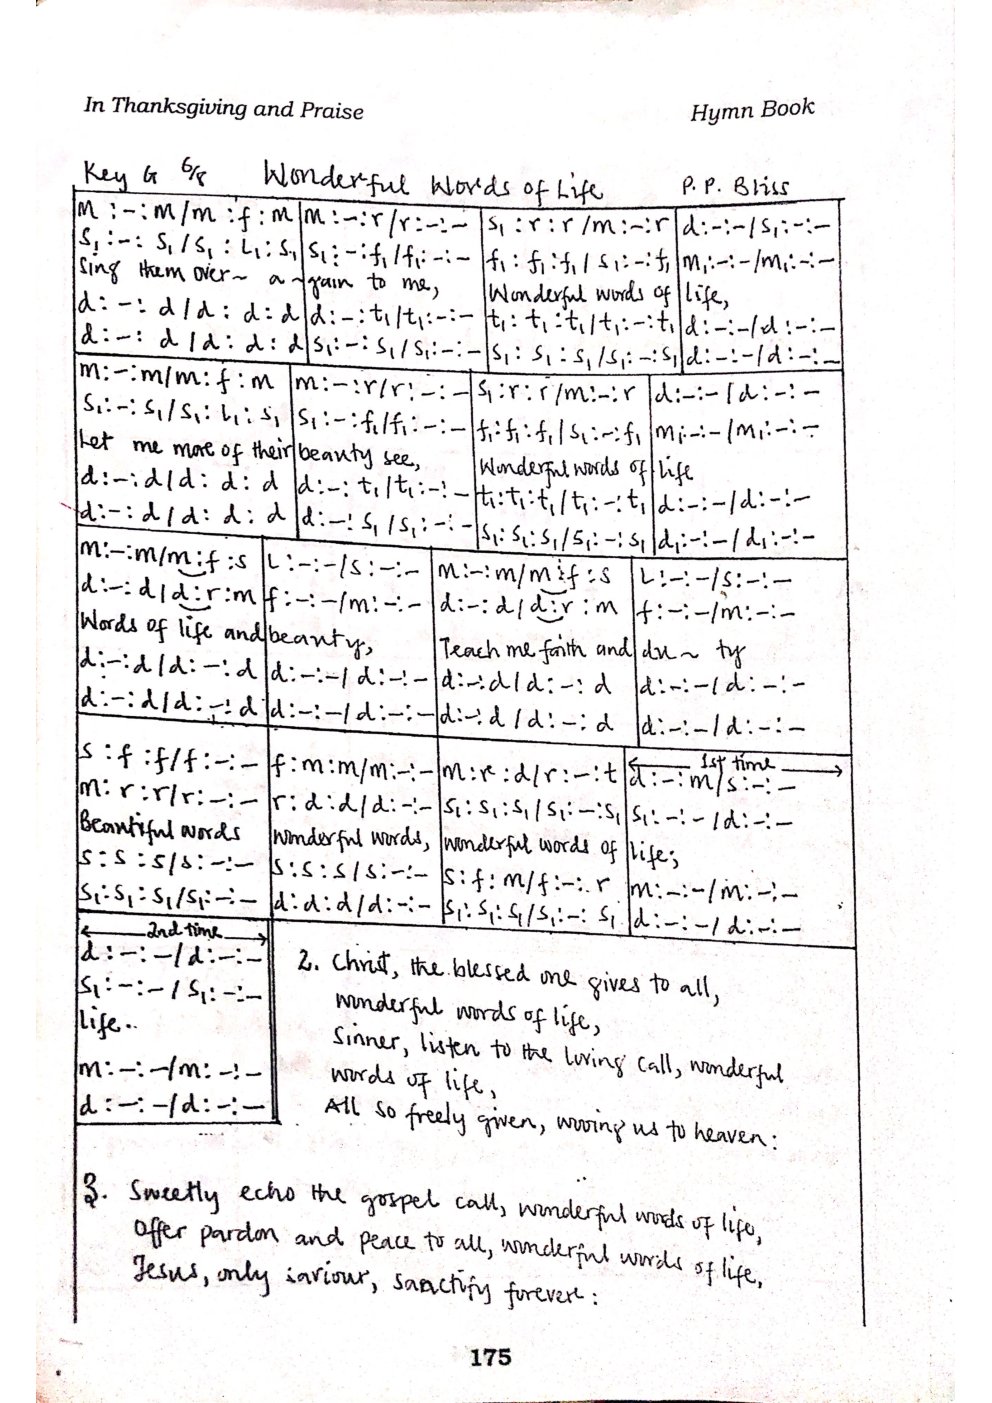 In Thanksgiving and Praise Hymn Book
Key G 6/8 Wonderful Words of Life P. P. Bliss
m :-: m / m : f : m | m :-: r / r :-:- | s₁ : r : r / m :-: r | d :-:- / s₁ :-:-
s₁ :-: s₁ / s₁ : l₁ : s₁ | s₁ :-: f₁ / f₁ :-:- | f₁ : f₁ : f₁ / s₁ :-: f₁ | m₁ :-:- / m₁ :-:-
Sing them over~ a~gain to me, Wonderful words of life,
d :-: d / d : d : d | d :-: t₁ / t₁ :-:- | t₁ : t₁ : t₁ / t₁ :-: t₁ | d :-:- / d :-:-
d :-: d / d : d : d | s₁ :-: s₁ / s₁ :-:- | s₁ : s₁ : s₁ / s₁ :-: s₁ | d :-:- / d :-:-
m :-: m / m : f : m | m :-: r / r :-:- | s₁ : r : r / m :-: r | d :-:- / d :-:-
s₁ :-: s₁ / s₁ : l₁ : s₁ | s₁ :-: f₁ / f₁ :-:- | f₁ : f₁ : f₁ / s₁ :-: f₁ | m₁ :-:- / m₁ :-:-
Let me more of their beauty see, Wonderful words of life
d :-: d / d : d : d | d :-: t₁ / t₁ :-:- | t₁ : t₁ : t₁ / t₁ :-: t₁ | d :-:- / d :-:-
d :-: d / d : d : d | d :-: s₁ / s₁ :-:- | s₁ : s₁ : s₁ / s₁ :-: s₁ | d₁ :-:- / d₁ :-:-
m :-: m / m : f : s | l :-:- / s :-:- | m :-: m / m : f : s | l :-:- / s :-:-
d :-: d / d : r : m | f :-:- / m :-:- | d :-: d / d : r : m | f :-:- / m :-:-
Words of life and beauty, Teach me faith and du~ ty
d :-: d / d :-: d | d :-:- / d :-:- | d :-: d / d :-: d | d :-:- / d :-:-
d :-: d / d :-: d | d :-:- / d :-:- | d :-: d / d :-: d | d :-:- / d :-:-
1st time
s : f : f / f :-:- | f : m : m / m :-:- | m : r : d / r :-: t | d :-: m / s :-:-
m : r : r / r :-:- | r : d : d / d :-:- | s₁ : s₁ : s₁ / s₁ :-: s₁ | s₁ :-:- / d :-:-
Beautiful words wonderful words, wonderful words of life;
s : s : s / s :-:- | s : s : s / s :-:- | s : f : m / f :-: r | m :-:- / m :-:-
s₁ : s₁ : s₁ / s₁ :-:- | d : d : d / d :-:- | s₁ : s₁ : s₁ / s₁ :-: s₁ | d :-:- / d :-:-
2nd time
d :-:- / d :-:-
s₁ :-:- / s₁ :-:-
life..
m :-:- / m :-:-
d :-:- / d :-:-
2. Christ, the blessed one gives to all,
wonderful words of life,
Sinner, listen to the loving call, wonderful
words of life,
All so freely given, wooing us to heaven:
3. Sweetly echo the gospel call, wonderful words of life,
Offer pardon and peace to all, wonderful words of life,
Jesus, only saviour, sanctify forever:
175